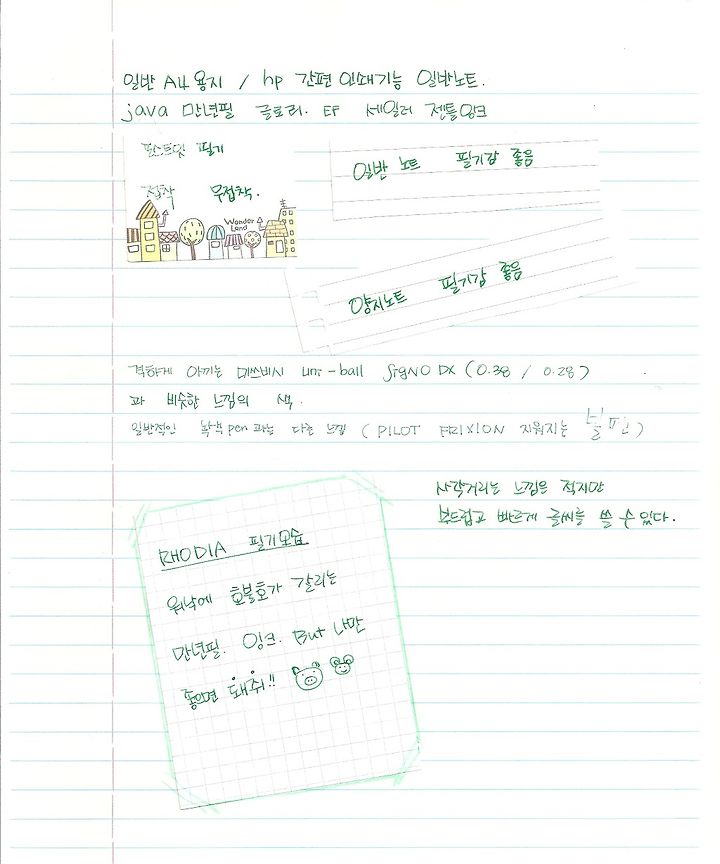 일반 A4 용지 / hp 간편 인쇄기능 일반노트.
java 만년필 글로리. EF 세일러 젠틀잉크
포스트잇 필기
접착 무접착.
Wonder
Land
일반 노트 필기감 좋음
양지노트 필기감 좋음
격하게 아끼는 미쓰비시 uni-ball SIGNO DX (0.38 / 0.28)
과 비슷한 느낌의 색.
일반적인 녹색 pen 과는 다른 느낌 (PILOT FRIXION 지워지는 볼펜)
사각거리는 느낌은 적지만
부드럽고 빠르게 글씨를 쓸 수 있다.
RHODIA 필기모습
워낙에 호불호가 갈리는
만년필. 잉크. But 나만
좋으면 돼쥐!!